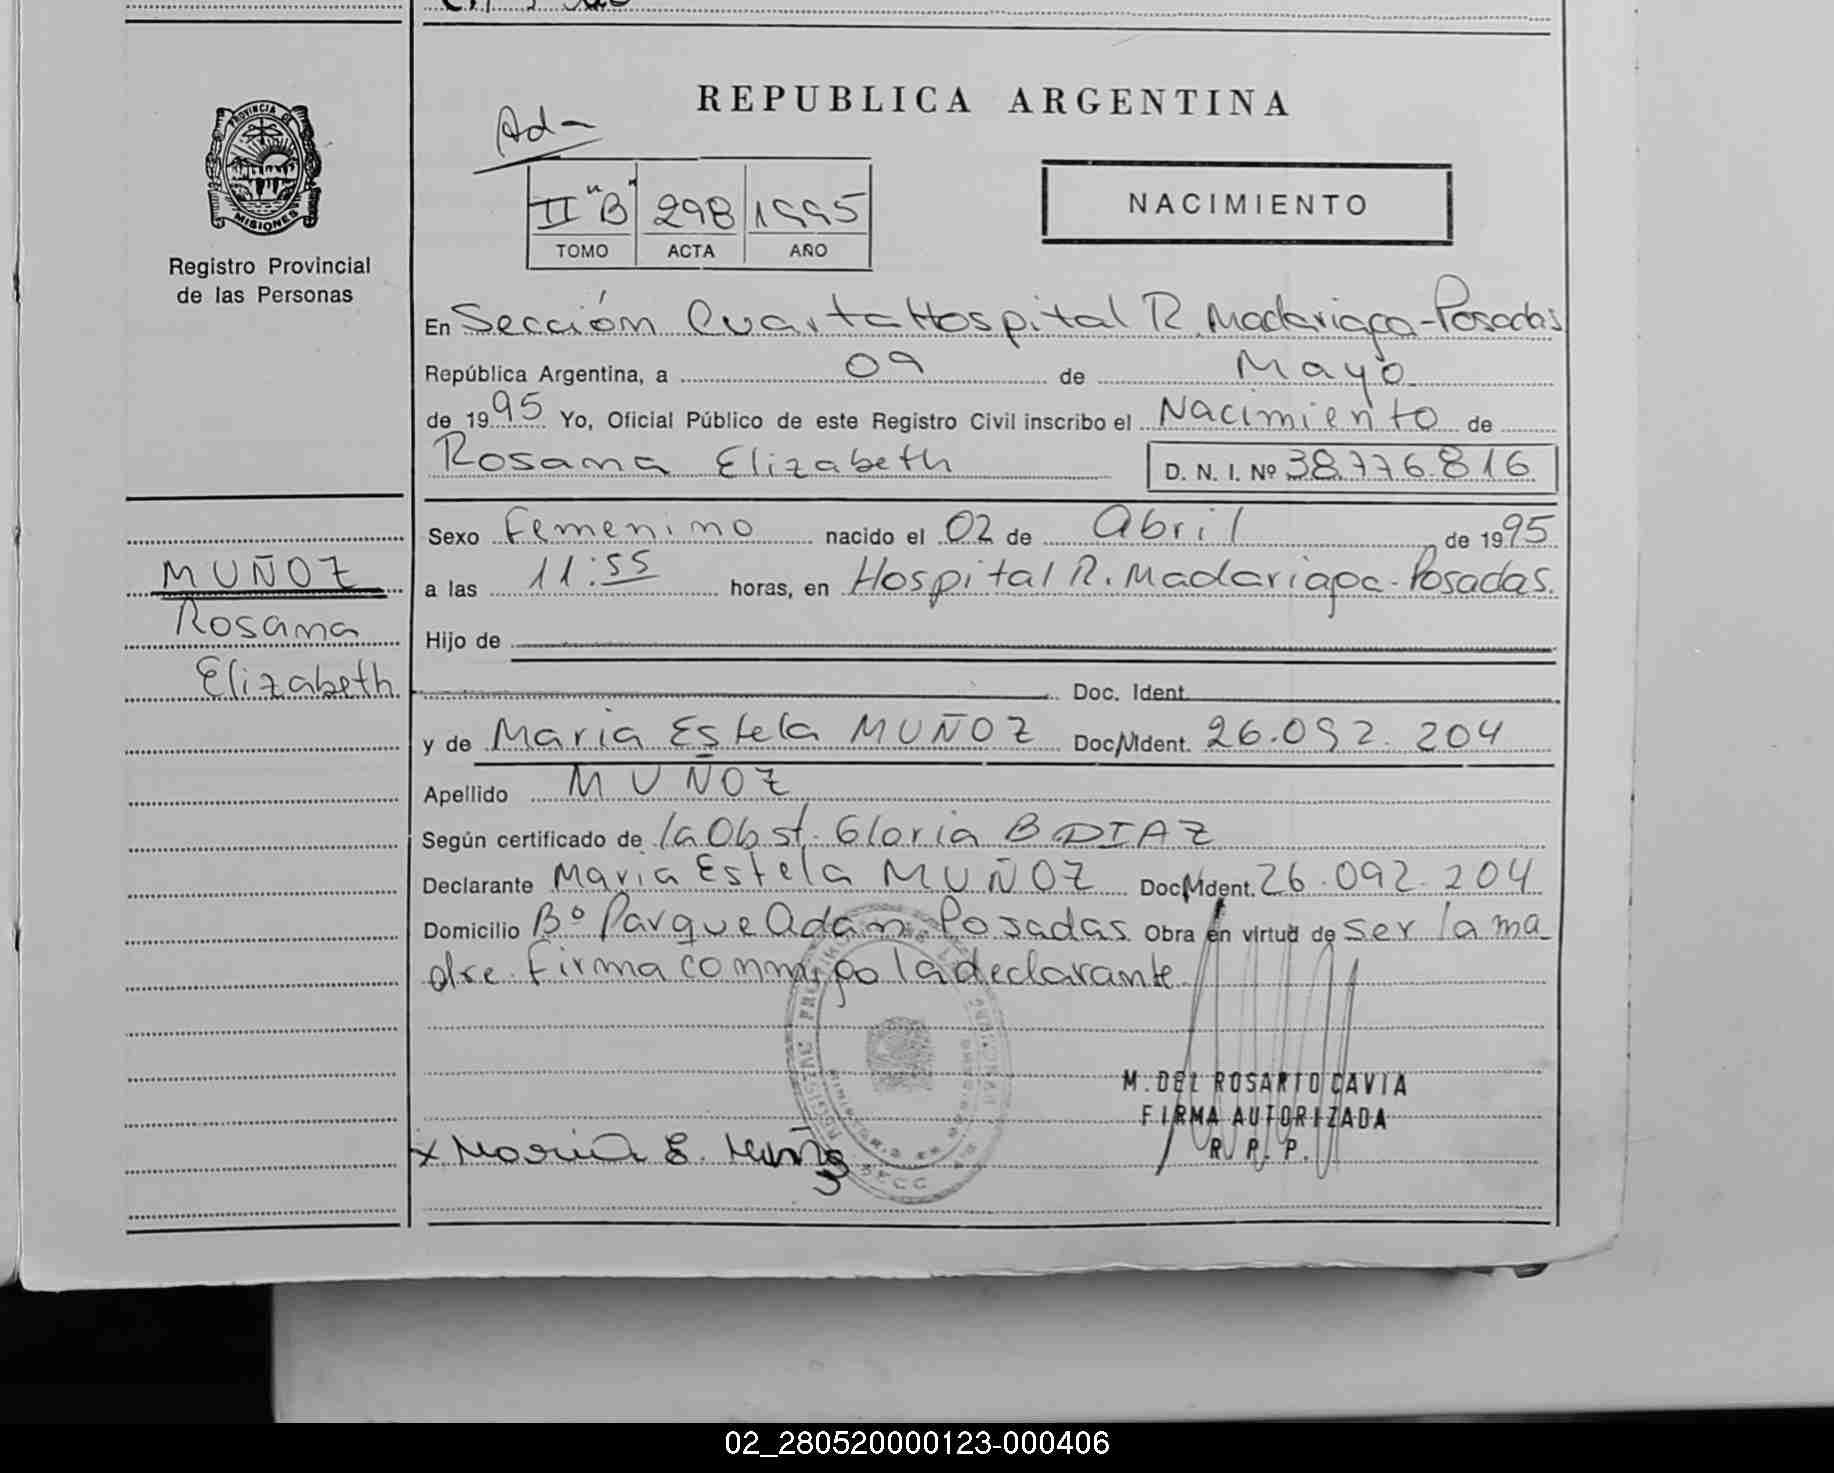 REPUBLICA ARGENTINA
Ada
PROVINCIA DE
MISIONES
Registro Provincial
de las Personas
II "B" 298 1995
TOMO ACTA AÑO
NACIMIENTO
En Sección Cuarta Hospital R. Madariaga - Posadas
República Argentina, a 09 de Mayo
de 1995 Yo, Oficial Público de este Registro Civil inscribo el Nacimiento de
Rosana Elizabeth D. N. I. Nº 38.776.816
Sexo Femenino nacido el 02 de Abril de 1995
MUÑOZ
Rosana
Elizabeth
a las 11:55 horas, en Hospital R. Madariaga - Posadas.
Hijo de
Doc. Ident.
y de Maria Estela MUÑOZ Doc. Ident. 26.092.204
Apellido MUÑOZ
Según certificado de la Obst. Gloria B DIAZ
Declarante Maria Estela MUÑOZ Doc. Ident. 26.092.204
Domicilio Bº Parque Adam Posadas Obra en virtud de ser la ma
dre. Firma conmigo la declarante
M. DEL ROSARIO CAVIA
FIRMA AUTORIZADA
R. P. P.
x Maria E. Muñoz
02_280520000123-000406